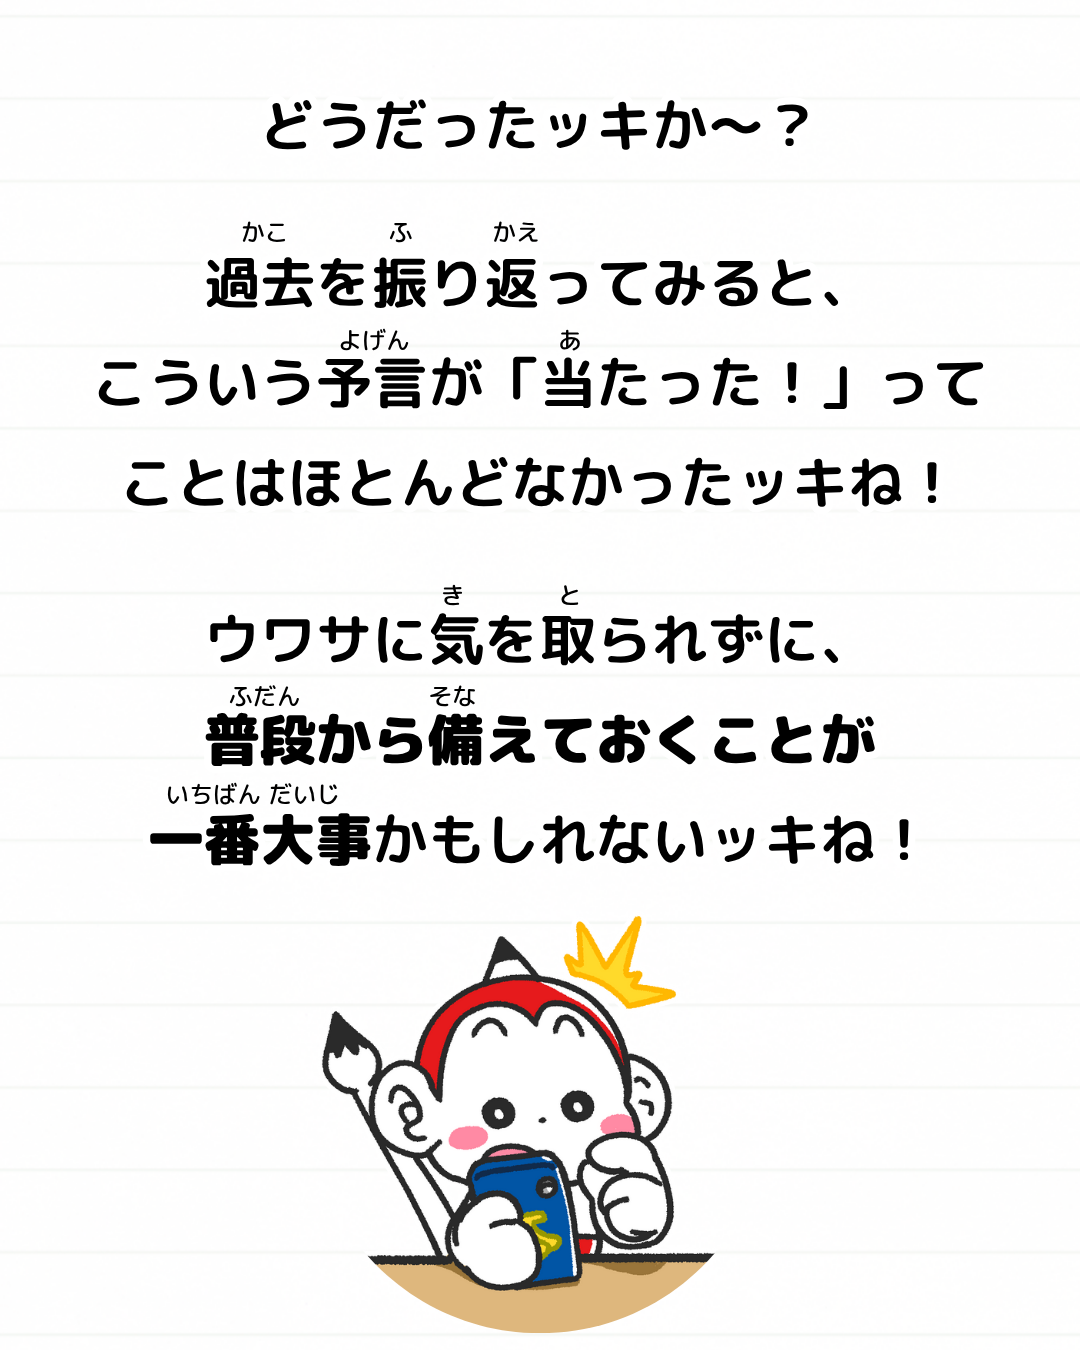 どうだったッキか〜？
かこ ふ かえ
過去を振り返ってみると、
よげん あ
こういう予言が「当たった！」って
ことはほとんどなかったッキね！
き と
ウワサに気を取られずに、
ふだん そな
普段から備えておくことが
いちばん だいじ
一番大事かもしれないッキね！